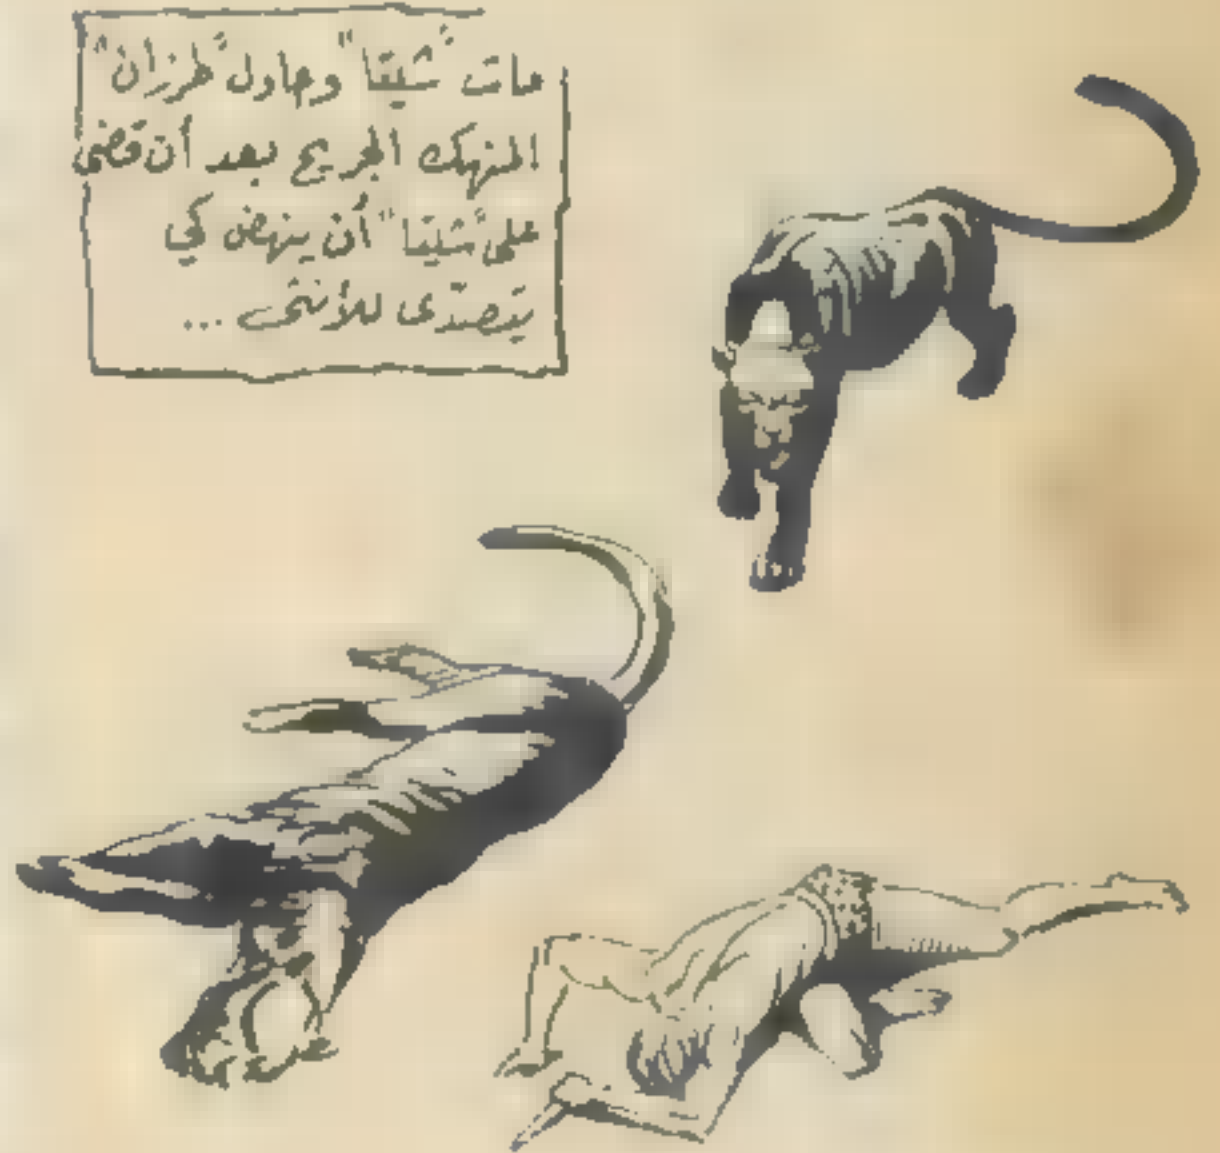 مات "شيتا" وحاول "طرزان"
المنهك الجريح بعد أن قضى
على "شيتا" أن ينهض كي
يتصدّى للأنثى ...